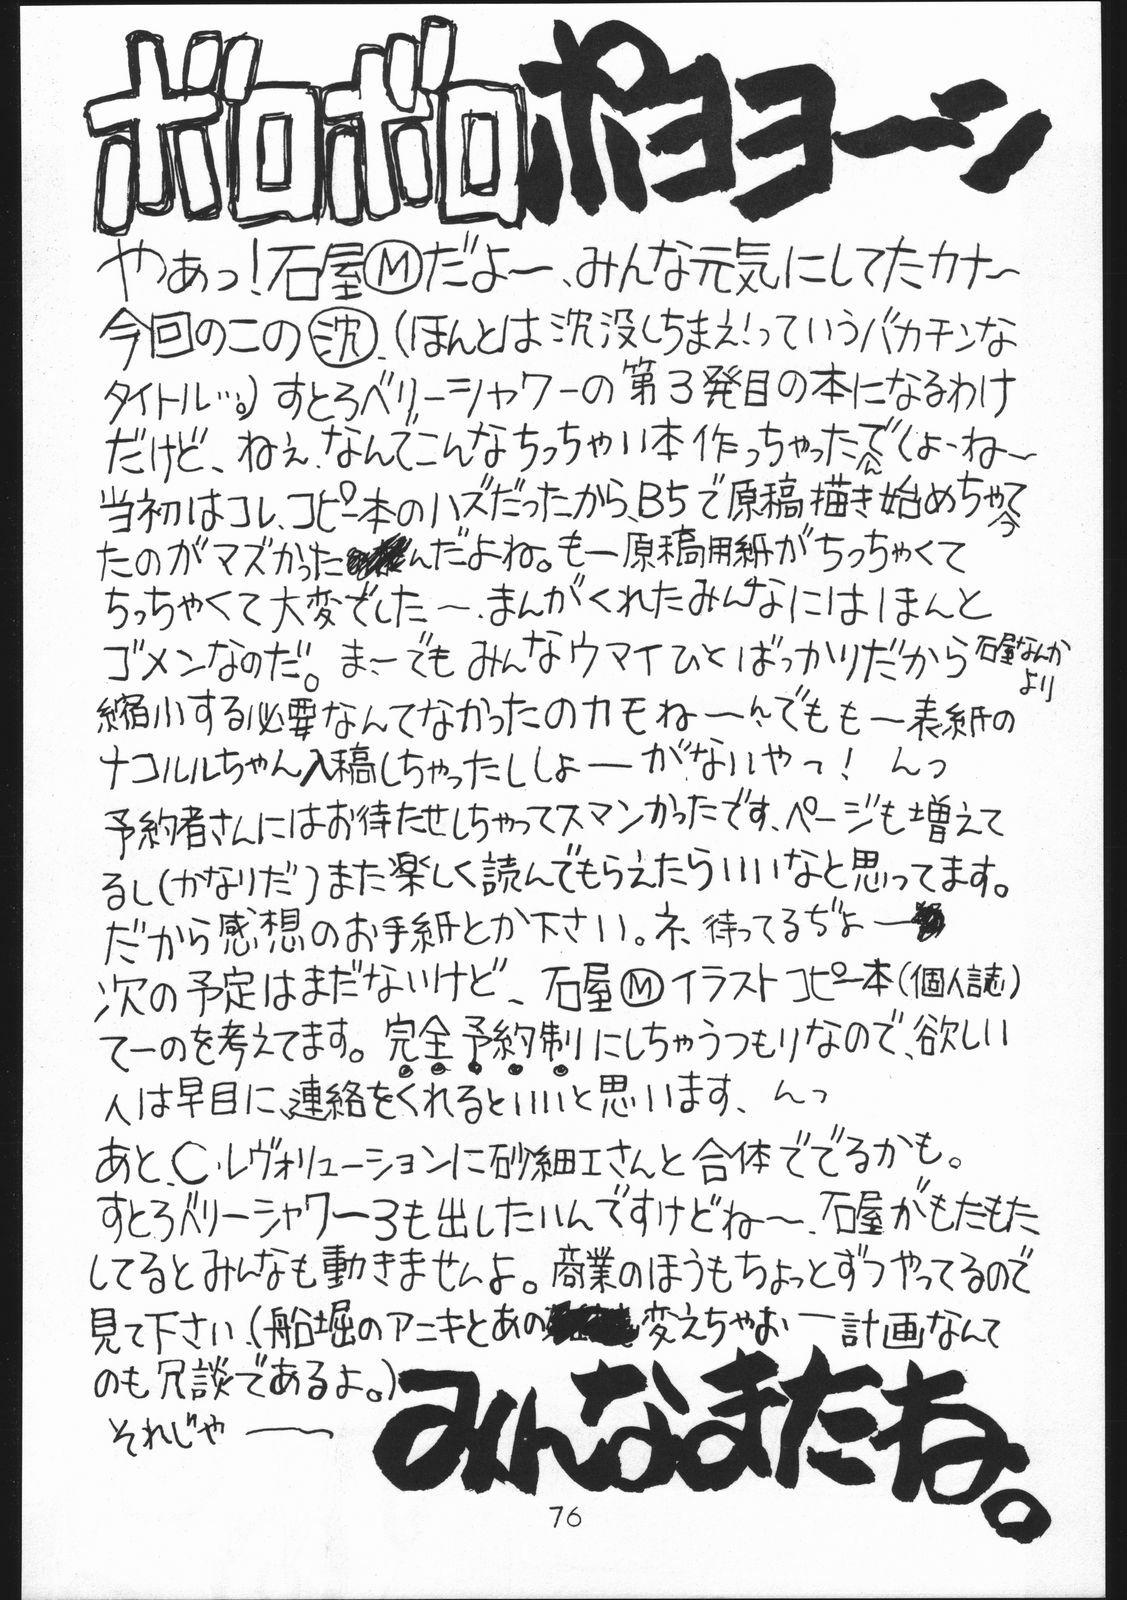 ボロボロポヨヨーン
やぁっ!石屋Ⓜだよ〜、みんな元気にしてたカナ〜
今回のこの沈、(ほんとは沈没しちまえ!っていうバカチンな
タイトル…。)すとろベリーシャワーの第3発目の本になるわけ
だけど、ねぇ、なんでこんなちっちゃい本作っちゃったでしょーね〜
ん
当初はコレ、コピー本のハズだったから、B5で原稿描き始めちゃて
今
たのがマズかったんだよね。もー原稿用紙がちっちゃくて
ちっちゃくて大変でした〜、まんがくれたみんなにはほんと
ゴメンなのだ。ま〜でもみんなウマイひとばっかりだから
石屋なんか
より
縮小する必要なんてなかったのカモね〜ん、でももー表紙の
ナコルルちゃん入稿しちゃったししょーがないやっ!んっ
予約者さんにはお待たせしちゃってスマンかったです、ページも増えて
るし(かなりだ)また楽しく読んでもらえたらいいなと思ってます。
だから感想のお手紙とか下さい。ネ、待ってるぢょー
次の予定はまだないけど、石屋Ⓜイラストコピー本(個人誌)
てーのを考えてます。完全予約制にしちゃうつもりなので、欲しい
人は早目に、連絡をくれるといいと思います、んっ
あと、C・レヴォリューションに砂細工さんと合体ででるかも。
すとろベリーシャワー3も出したいんですけどね〜、石屋がもたもた
してるとみんなも動きませんよ。商業のほうもちょっとずつやってるので
見て下さい、(船堀のアニキとあの変えちゃおー計画なんて
のも冗談であるよ。)
それじゃ――
みんなまたね。
76